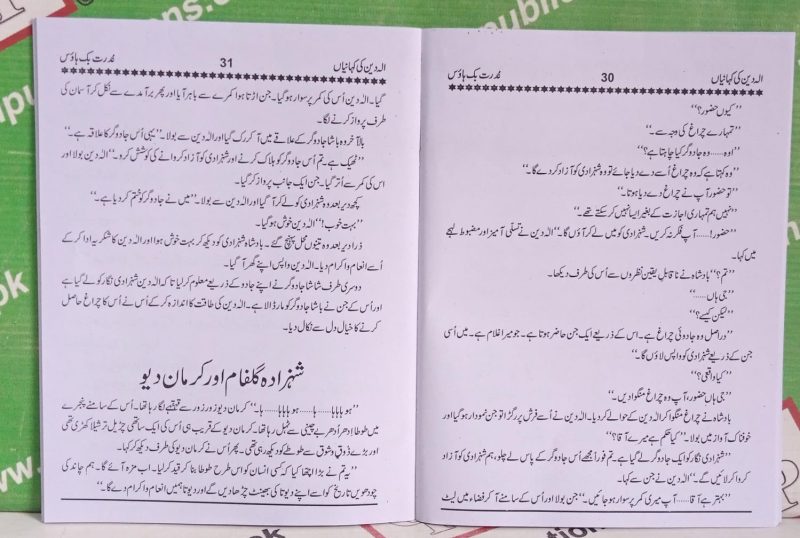 الہ دین کی کہانیاں 30 قدرت بک ہاؤس
”کیوں حضور؟“
”تمہارے چراغ کی وجہ سے۔“
”اوہ......وہ جادوگر کیا چاہتا ہے؟“
”وہ کہتا ہے کہ وہ چراغ اُسے دے دیا جائے تو وہ شہزادی کو آزاد کر دے گا۔“
”تو حضور آپ نے چراغ دے دیا ہوتا۔“
”نہیں ہم تمہاری اجازت کے بغیر ایسا نہیں کر سکتے تھے۔“
”حضور!......آپ فکر نہ کریں۔ شہزادی کو میں لے کر آؤں گا۔“ الہ دین نے تسلی آمیز اور مضبوط لہجے
میں کہا۔
”تم؟“ بادشاہ نے ناقابل یقین نظروں سے اُس کی طرف دیکھا۔
”جی ہاں......“
”لیکن کیسے؟“
”دراصل وہ جادوئی چراغ ہے۔ اس کے ذریعے ایک جن حاضر ہوتا ہے۔ جو میرا غلام ہے۔ میں اُسی
جن کے ذریعے شہزادی کو واپس لاؤں گا۔“
”کیا واقعی؟“
”جی ہاں حضور، آپ وہ چراغ منگوا دیں۔“
بادشاہ نے چراغ منگوا کر الہ دین کے حوالے کر دیا۔ الہ دین نے اُسے فرش پر رگڑا تو جن نمودار ہو گیا اور
خوفناک آواز میں بولا۔ ”کیا حکم ہے میرے آقا؟“
”شہزادی نگار کو ایک جادوگر لے گیا ہے۔ تم فوراً مجھے اُس جادوگر کے پاس لے چلو، ہم شہزادی کو آزاد
کروا کر لائیں گے۔“ الہ دین نے جن سے کہا۔
”بہتر ہے آقا......آپ میری کمر پر سوار ہو جائیں۔“ جن بولا اور اُس کے سامنے آ کر فضاء میں لیٹ
الہ دین کی کہانیاں 31 قدرت بک ہاؤس
گیا۔ الہ دین اُس کی کمر پر سوار ہو گیا۔ جن اڑتا ہوا کمرے سے باہر آیا اور پھر برآمدے سے نکل کر آسمان کی
طرف پرواز کرنے لگا۔
بالآخر وہ باشا جادوگر کے علاقے میں آ کر رک گیا اور الہ دین سے بولا۔ ”یہی اُس جادوگر کا علاقہ ہے۔“
”ٹھیک ہے۔ تم اُس جادوگر کو ہلاک کرنے اور شہزادی کو آزاد کروانے کی کوشش کرو۔“ الہ دین بولا اور
اس کی کمر سے اُتر گیا۔ جن ایک جانب پرواز کر گیا۔
کچھ دیر بعد وہ شہزادی کو لے کر آ گیا اور الہ دین سے بولا۔ ”میں نے جادوگر کو ختم کر دیا ہے۔“
”بہت خوب!“ الہ دین خوش ہو گیا۔
ذرا دیر بعد وہ تینوں محل پہنچ گئے۔ بادشاہ شہزادی کو دیکھ کر بہت خوش ہوا اور الہ دین کا شکریہ ادا کر کے
اُسے انعام و اکرام دیا۔ الہ دین واپس اپنے گھر آ گیا۔
دوسری طرف شاشا جادوگر نے اپنے جادو کے ذریعے معلوم کر لیا تھا کہ الہ دین شہزادی نگار کو لے گیا ہے
اور اُس کے جن نے باشا جادوگر کو مار ڈالا ہے۔ الہ دین کی طاقت کا اندازہ کر کے اُس نے اُس کا چراغ حاصل
کرنے کا خیال دل سے نکال دیا۔
شہزادہ گلفام اور کرمان دیو
”ہو ہاہاہا......ہا......ہوہاہاہا......ہا۔“ کرمان دیو زور زور سے قہقہے لگا رہا تھا۔ اُس کے سامنے پنجرے
میں طوطا ادھر اُدھر بے چینی سے ٹہل رہا تھا۔ کرمان دیو کے قریب ہی اُس کی ایک ساتھی چڑیل ترشیلا کھڑی تھی
اور بڑے ذوق و شوق سے طوطے کو دیکھ رہی تھی۔ پھر اُس نے کرمان دیو کی طرف دیکھ کر کہا۔
”یہ تم نے بڑا اچھا کیا کہ کسی انسان کو اس طرح طوطا بنا کر قید کر لیا۔ اب مزہ آئے گا۔ ہم چاند کی
چودھویں تاریخ کو اسے اپنے دیوتا کی بھینٹ چڑھا دیں گے اور دیوتا ہمیں انعام و اکرام دے گا۔“